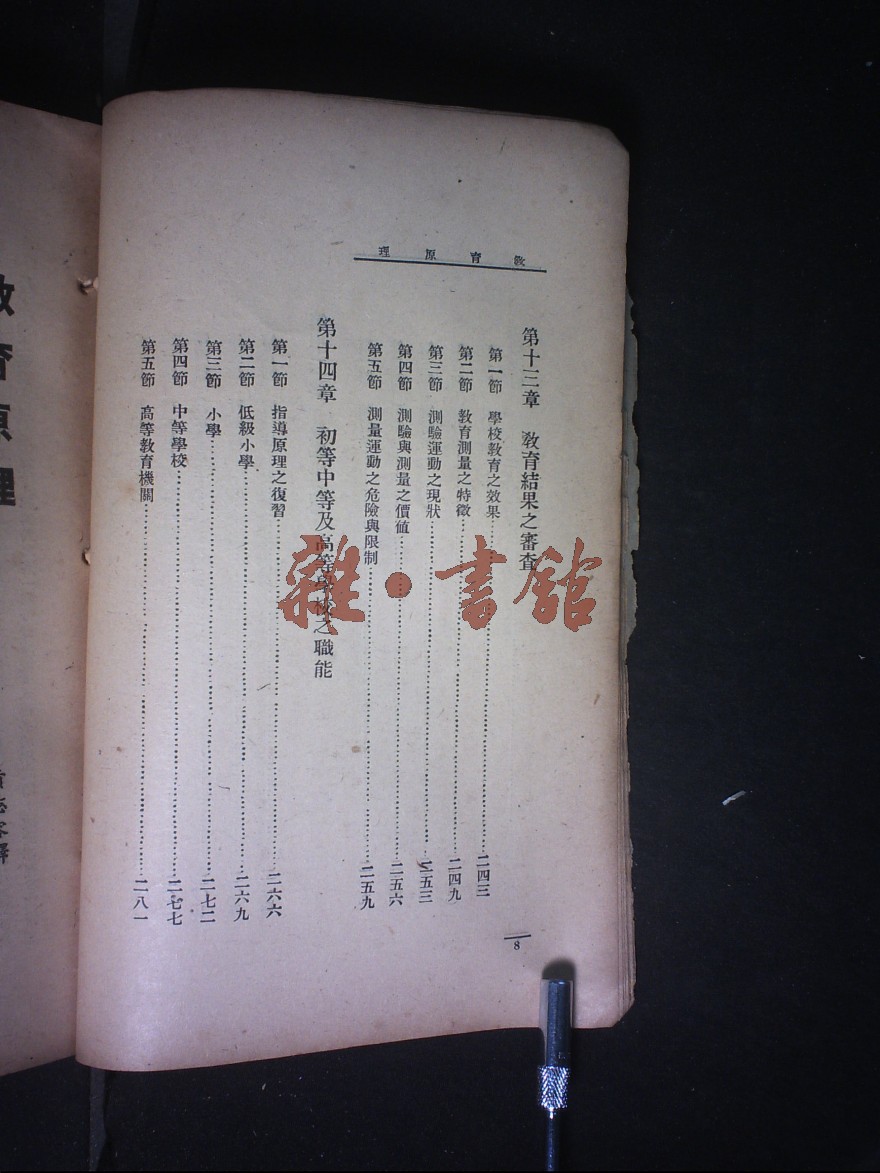 教育原理
第十三章 教育結果之審査
第一節 學校教育之效果……二四三
第二節 教育測量之特徵……二四九
第三節 測驗運動之現狀……二五三
第四節 測驗與測量之價値……二五六
第五節 測量運動之危險與限制……二五九
第十四章 初等中等及高等學校之職能
第一節 指導原理之復習……二六六
第二節 低級小學……二六九
第三節 小學……二七二
第四節 中等學校……二七七
第五節 高等教育機關……二八一
8
雜·書館
教育原理